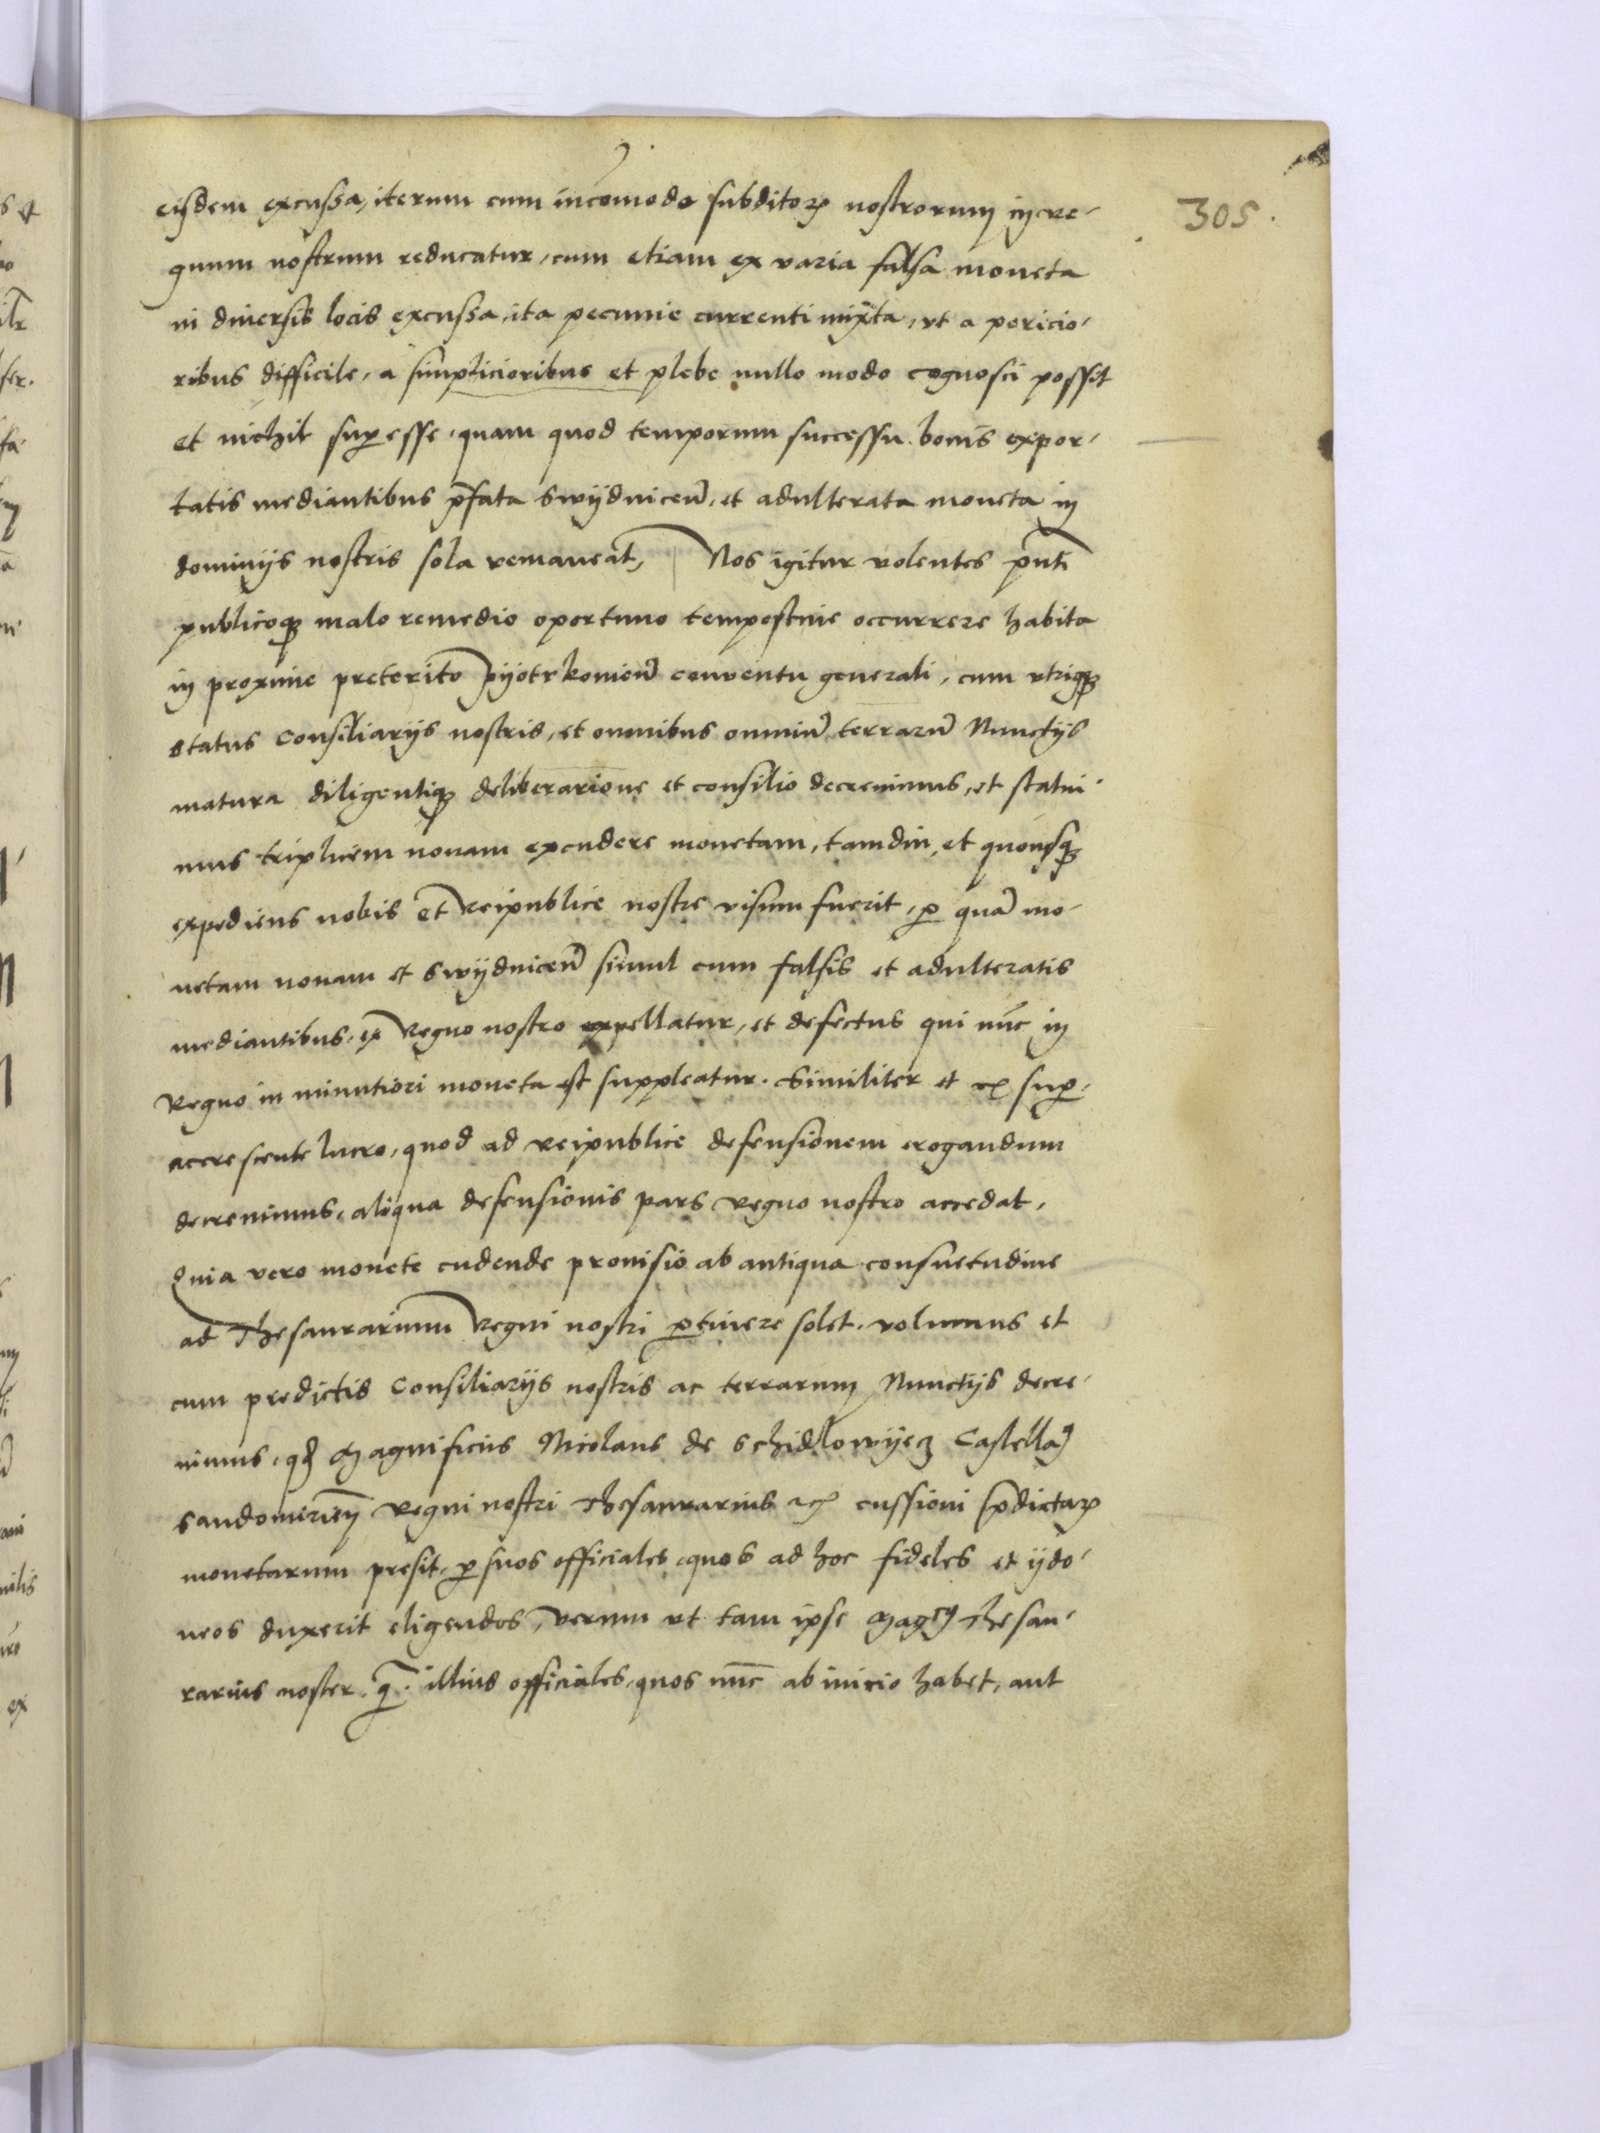 305.
eisdem excussa, iterum cum incomodo subditoꝝ nostrorum in re-
gnum nostrum reducatur, cum etiam ex varia falsa moneta
in diuersis locis excussa, ita pecunie currenti mixta, vt a pericio-
ribus difficile, a simplicioribus et plebe nullo modo cognosci possit
et nichil sup̱esse, quam quod temporum successu bonis expor-
tatis mediantibus p̄fata Swÿdniceñ, et adulterata moneta in
dominÿs nostris sola remaneat, Nos igitur volentes p̄nti
publicoqꝫ malo remedio oportuno tempestiue occurrere habita
in proxime preterito Pÿotrkouieñ conuentu generali, cum vtriqꝫ
status Consiliarÿs nostris, et omnibus omniū terrarū Nunctÿs
matura diligentiqꝫ deliberatione et consilio decreuimus, et statui-
mus triplicem nouam excudere monetam, tamdiu, et quousqꝫ
expediens nobis et Reipublice nostre visum fuerit, ꝑ quā mo-
netam nouam et Swÿdniceñ simul cum falsis et adulteratis
mediantibus, ex Regno nostro expellatur, et defectus qui nūc in
Regno in minutiori moneta est suppleatur. Similiter et ex suꝑ-
accrescente lucro, quod ad reipublice defensionem erogandum
decreuimus, aliqua defensionis pars regno nostro accedat,
Quia vero monete cudende prouisio ab antiqua consuetudine
ad Thesaurarium Regni nostri ꝑtinere solet, volumus et
cum predictis Consiliarÿs nostris ac terrarum Nunctÿs decre-
uimus, qđ Magnificus Nicolaus de Schidlowÿecz Castellañ
Sandomirieñ Regni nostri Thesaurarius etc cussioni p̄dictaꝝ
monetarum presit, ꝑ suos officiales, quos ad hoc fideles et ÿdo-
neos duxerit eligendos, verum vt tam ipse Mag^cus Thesau-
rarius noster, q̃ illius officiales, quos nūc ab inicio habet, aut